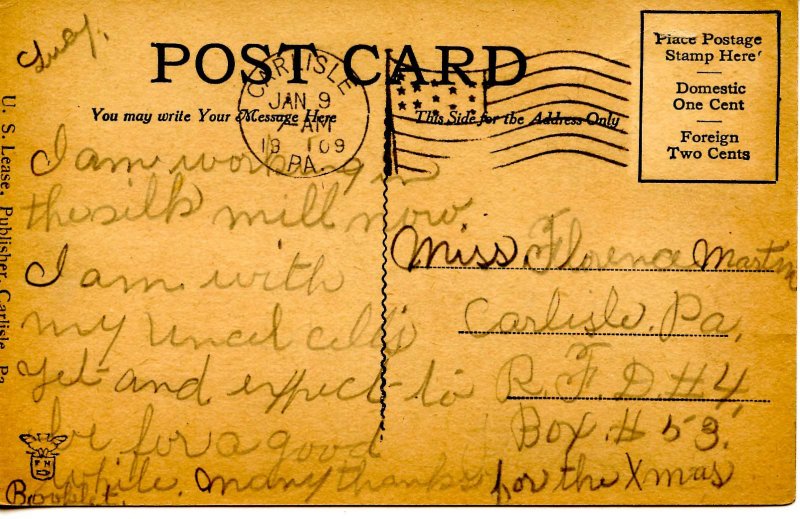 Lucy.
POST CARD
CARLISLE
JAN 9
7 AM
1909
PA.
You may write Your Message Here
This Side for the Address Only
Place Postage
Stamp Here
Domestic
One Cent
Foreign
Two Cents
U. S. Lease, Publisher, Carlisle, Pa
I am working in
the silk mill now.
I am with
my Uncel
yet and expect to
be for a good
while. Many thanks for the Xmas
Booklet.
Miss. Florence Martin
Carlisle. Pa.
R. F. D. #4,
Box. # 53.